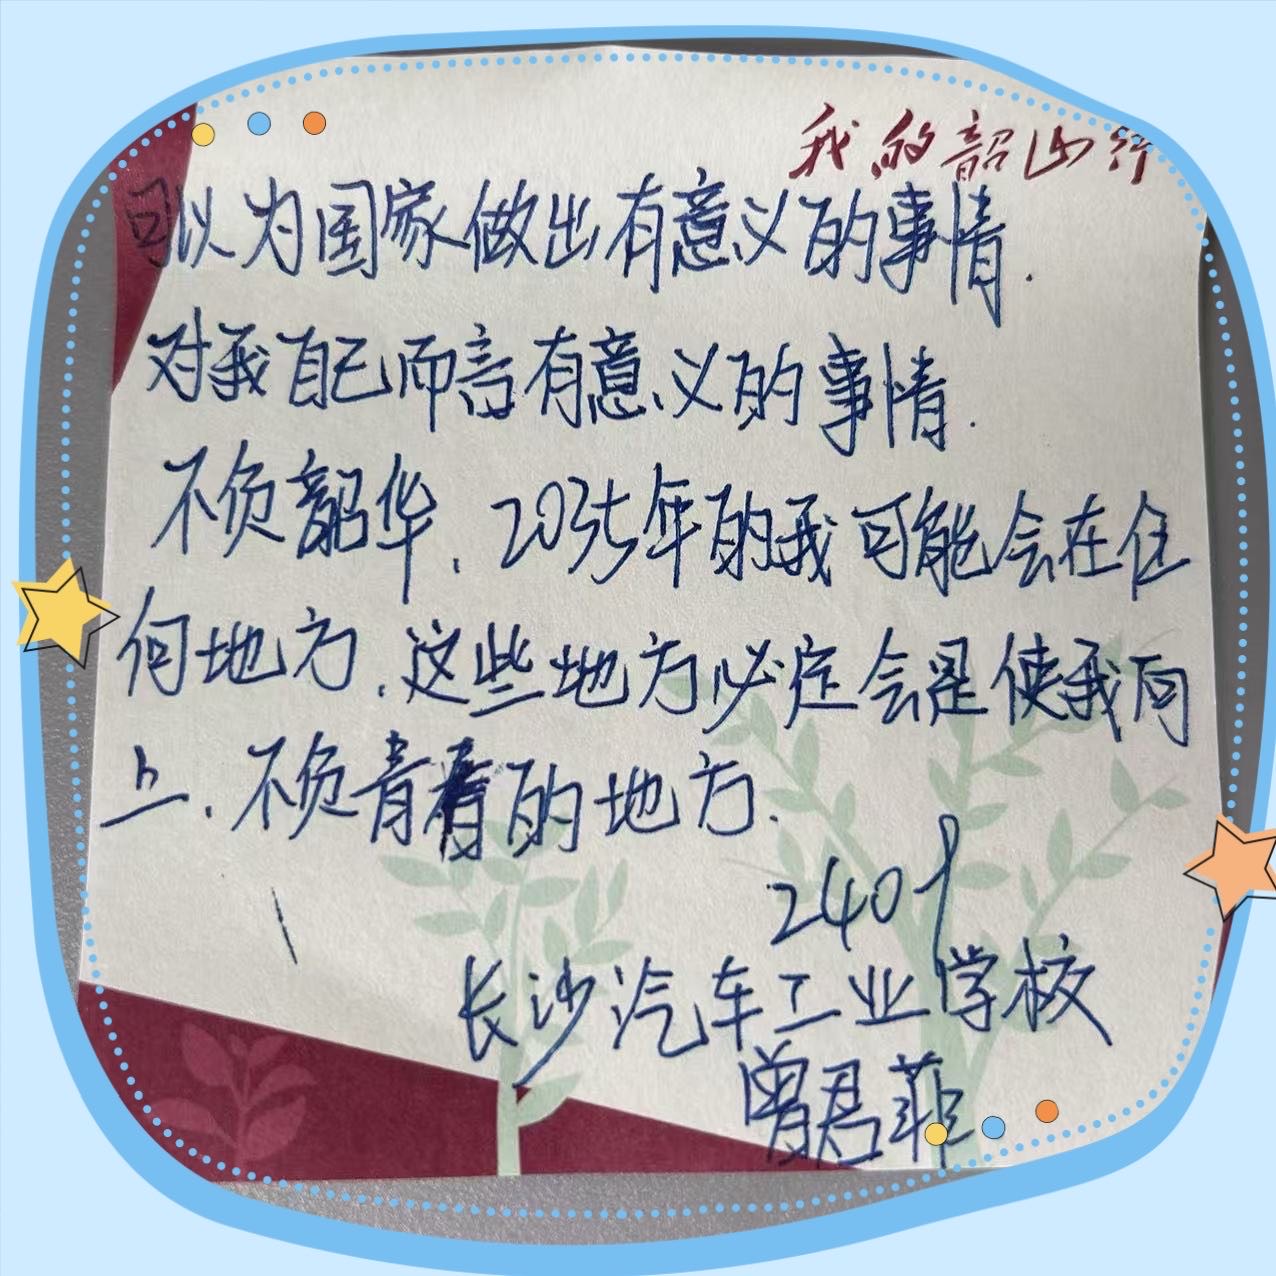 我的韶山行
可以为国家做出有意义的事情.
对我自己而言有意义的事情.
不负韶华.2035年的我可能会在任
何地方.这些地方必定会是使我向
上.不负青春的地方.
2401
长沙汽车工业学校
曾君菲